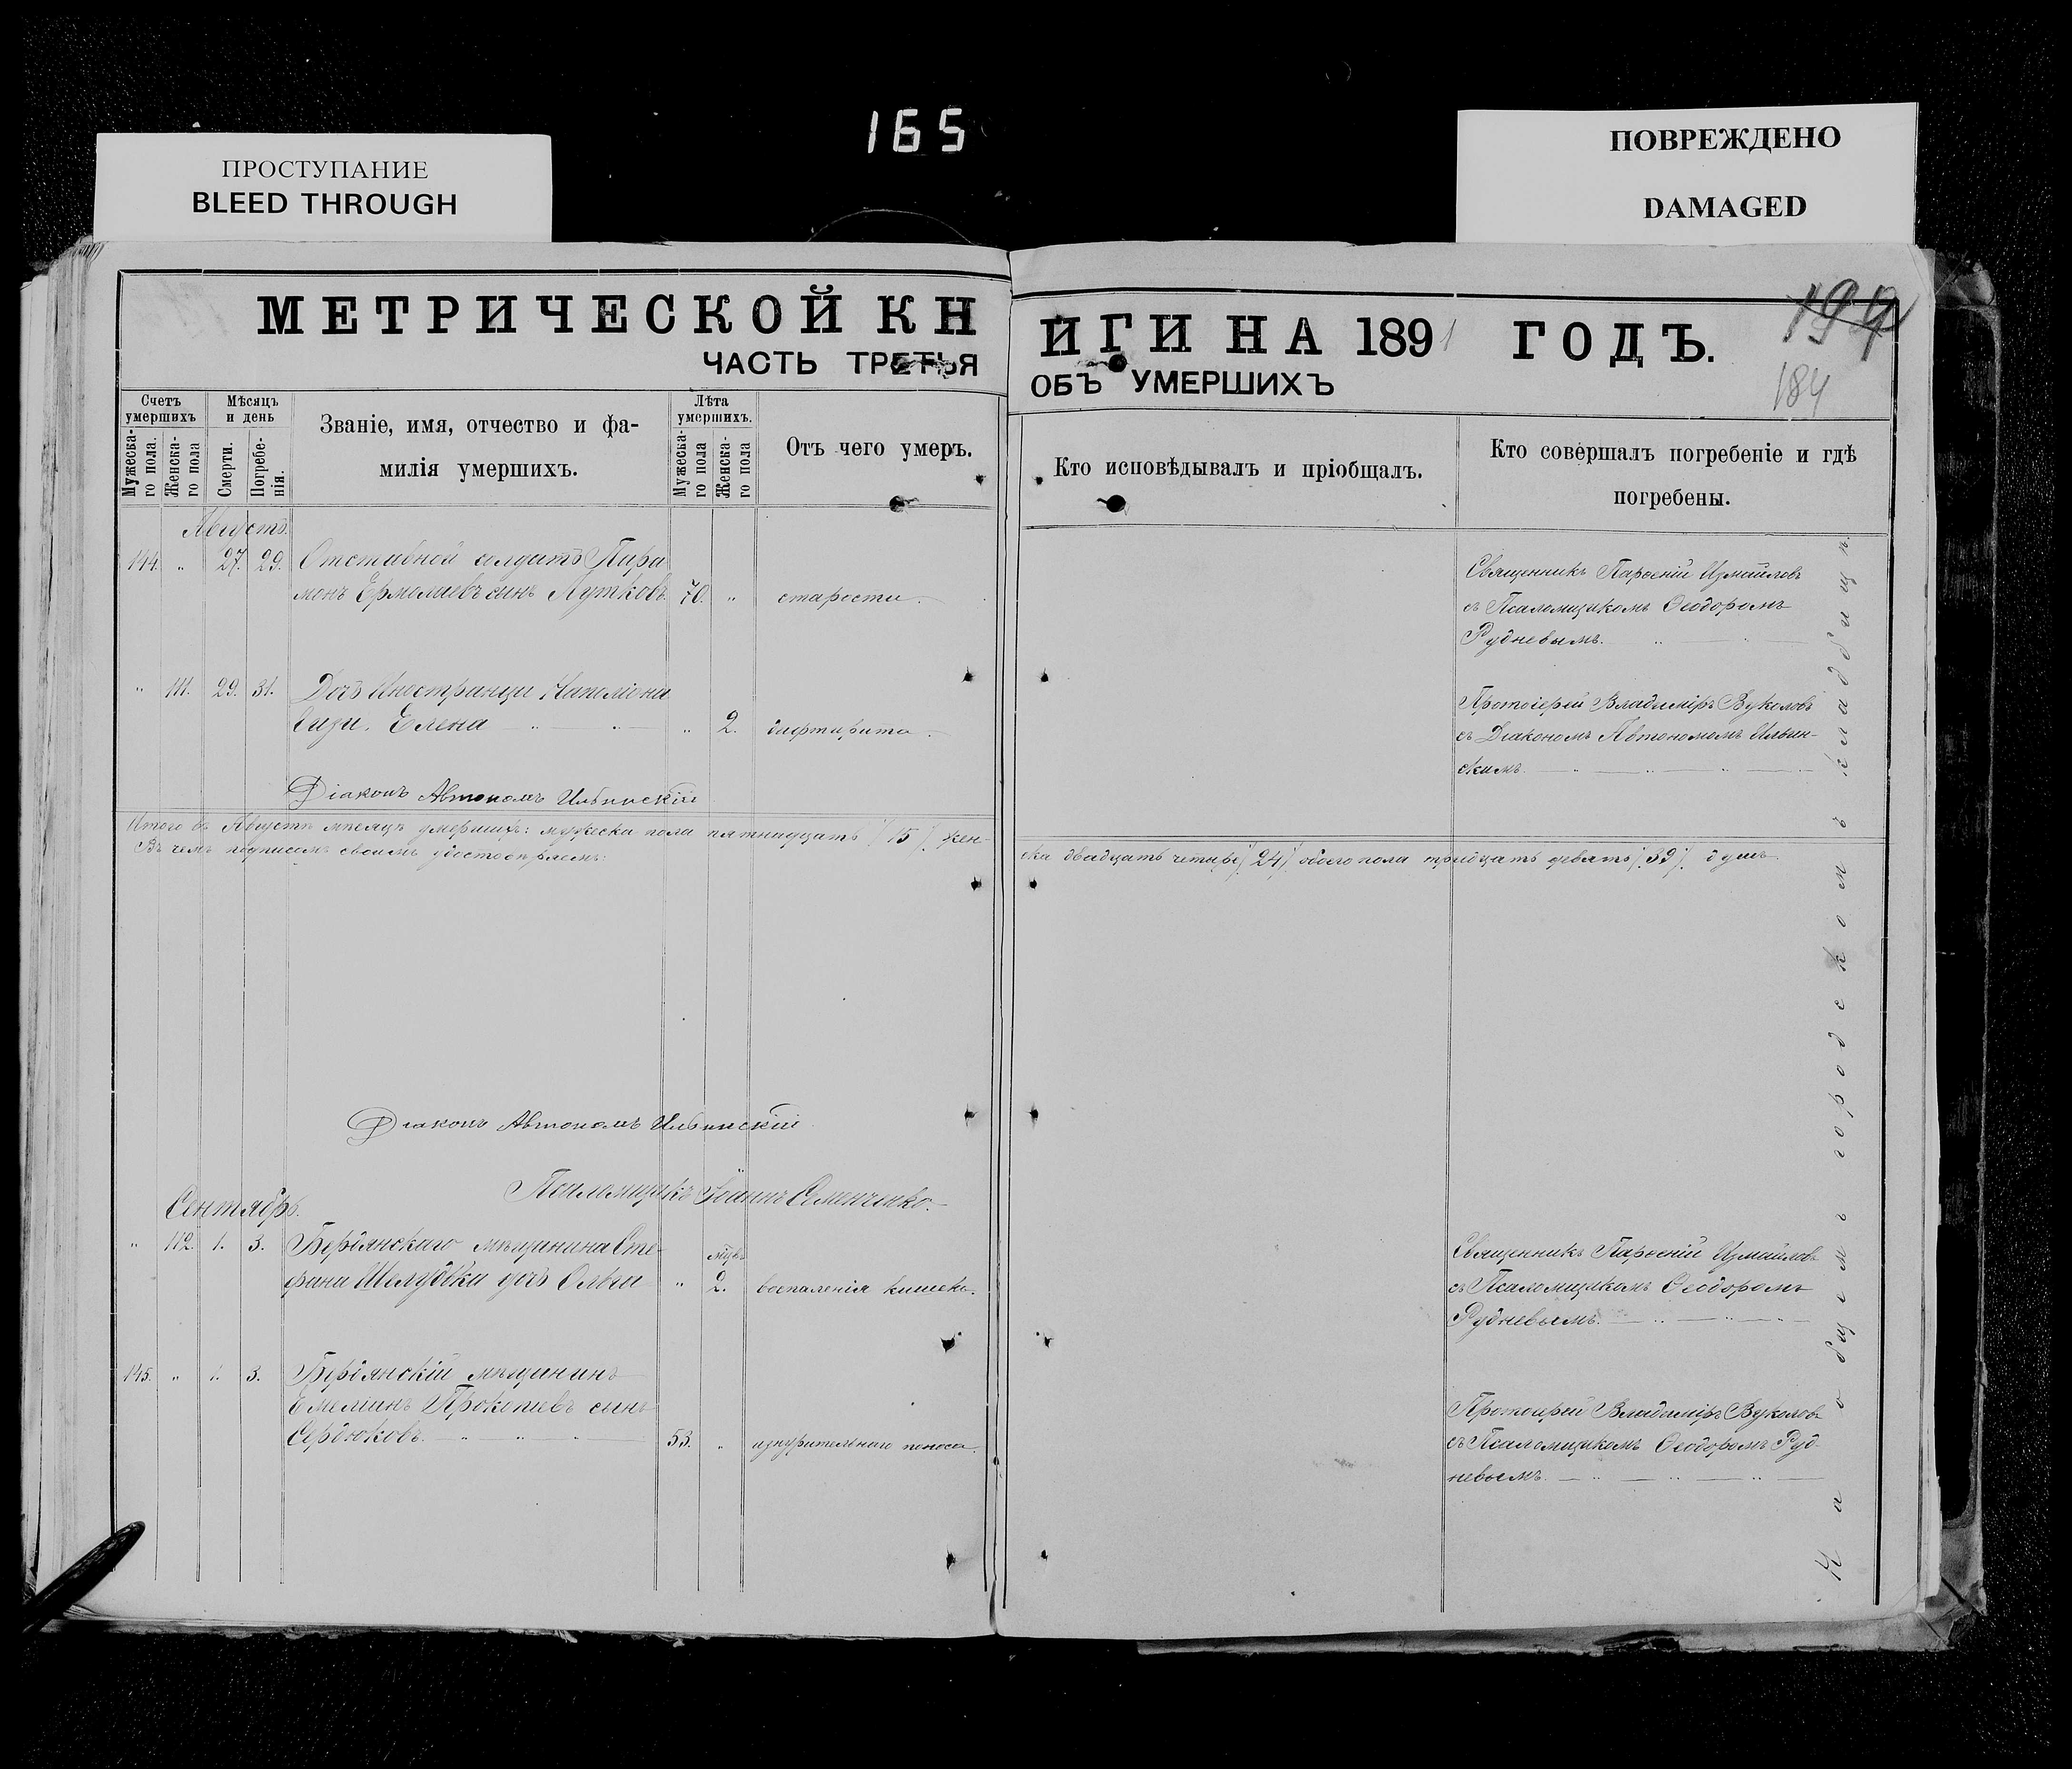 165
ПРОСТУПАНИЕ
BLEED THROUGH
ПОВРЕЖДЕНО
DAMAGED
МЕТРИЧЕСКОЙ КНИГИ НА 1891 ГОДЪ.
ЧАСТЬ ТРЕТЬЯ ОБЪ УМЕРШИХЪ
199
184
Счетъ умершихъ
Мужеска-го пола.
Женска-го пола
Мѣсяцъ и день
Смерти.
Погребе-нія.
Званіе, имя, отчество и фа-
милія умершихъ.
Лѣта умершихъ.
Мужеска-го пола
Женска-го пола
Отъ чего умеръ.
Кто исповѣдывалъ и пріобщалъ.
Кто совершалъ погребеніе и гдѣ
погребены.
Августъ.
144. " 27. 29. Отставной солдатъ Пара
монъ Ермолаевъ сынъ Лутковъ. 70. " старости.
Священникъ Парѳеній Измайловъ
съ Псаломщикомъ Ѳеодоромъ
Рудневымъ.
" 111. 29. 31. Дочь Иностранца Наполіона
Елена " 2. дифтирита.
Протоіерей Владиміръ Вуколовъ
съ Діакономъ Автономомъ Ильин-
скимъ.
Діаконъ Автономъ Ильинскій
Итого въ Августѣ мѣсяцѣ умершихъ: мужеска пола пятнадцать /15/. жен-
ска двадцать четыре /24/ обоего пола тридцать девять /.39/. душъ
Въ чемъ подписомъ своимъ удостовѣряемъ:
Діаконъ Автономъ Ильинскій
Псаломщикъ Іоаннъ Семенченко.
Сентябрь.
" 112. 1. 3. Бердянскаго мѣщанина Сте-
фана Шелудька дочь Ольга " мѣс. 2. воспаленія кишекъ.
Священникъ Парѳеній Измайловъ
съ Псаломщикомъ Ѳеодоромъ
Рудневымъ.
145. " 1. 3. Бердянскій мѣщанинъ
Емеліанъ Прокопіевъ сынъ
Сердюковъ. 53. " изнурительнаго поноса.
Протоіерей Владиміръ Вуколовъ
съ Псаломщикомъ Ѳеодоромъ Руд-
невымъ.
На общемъ городскомъ кладбищѣ.